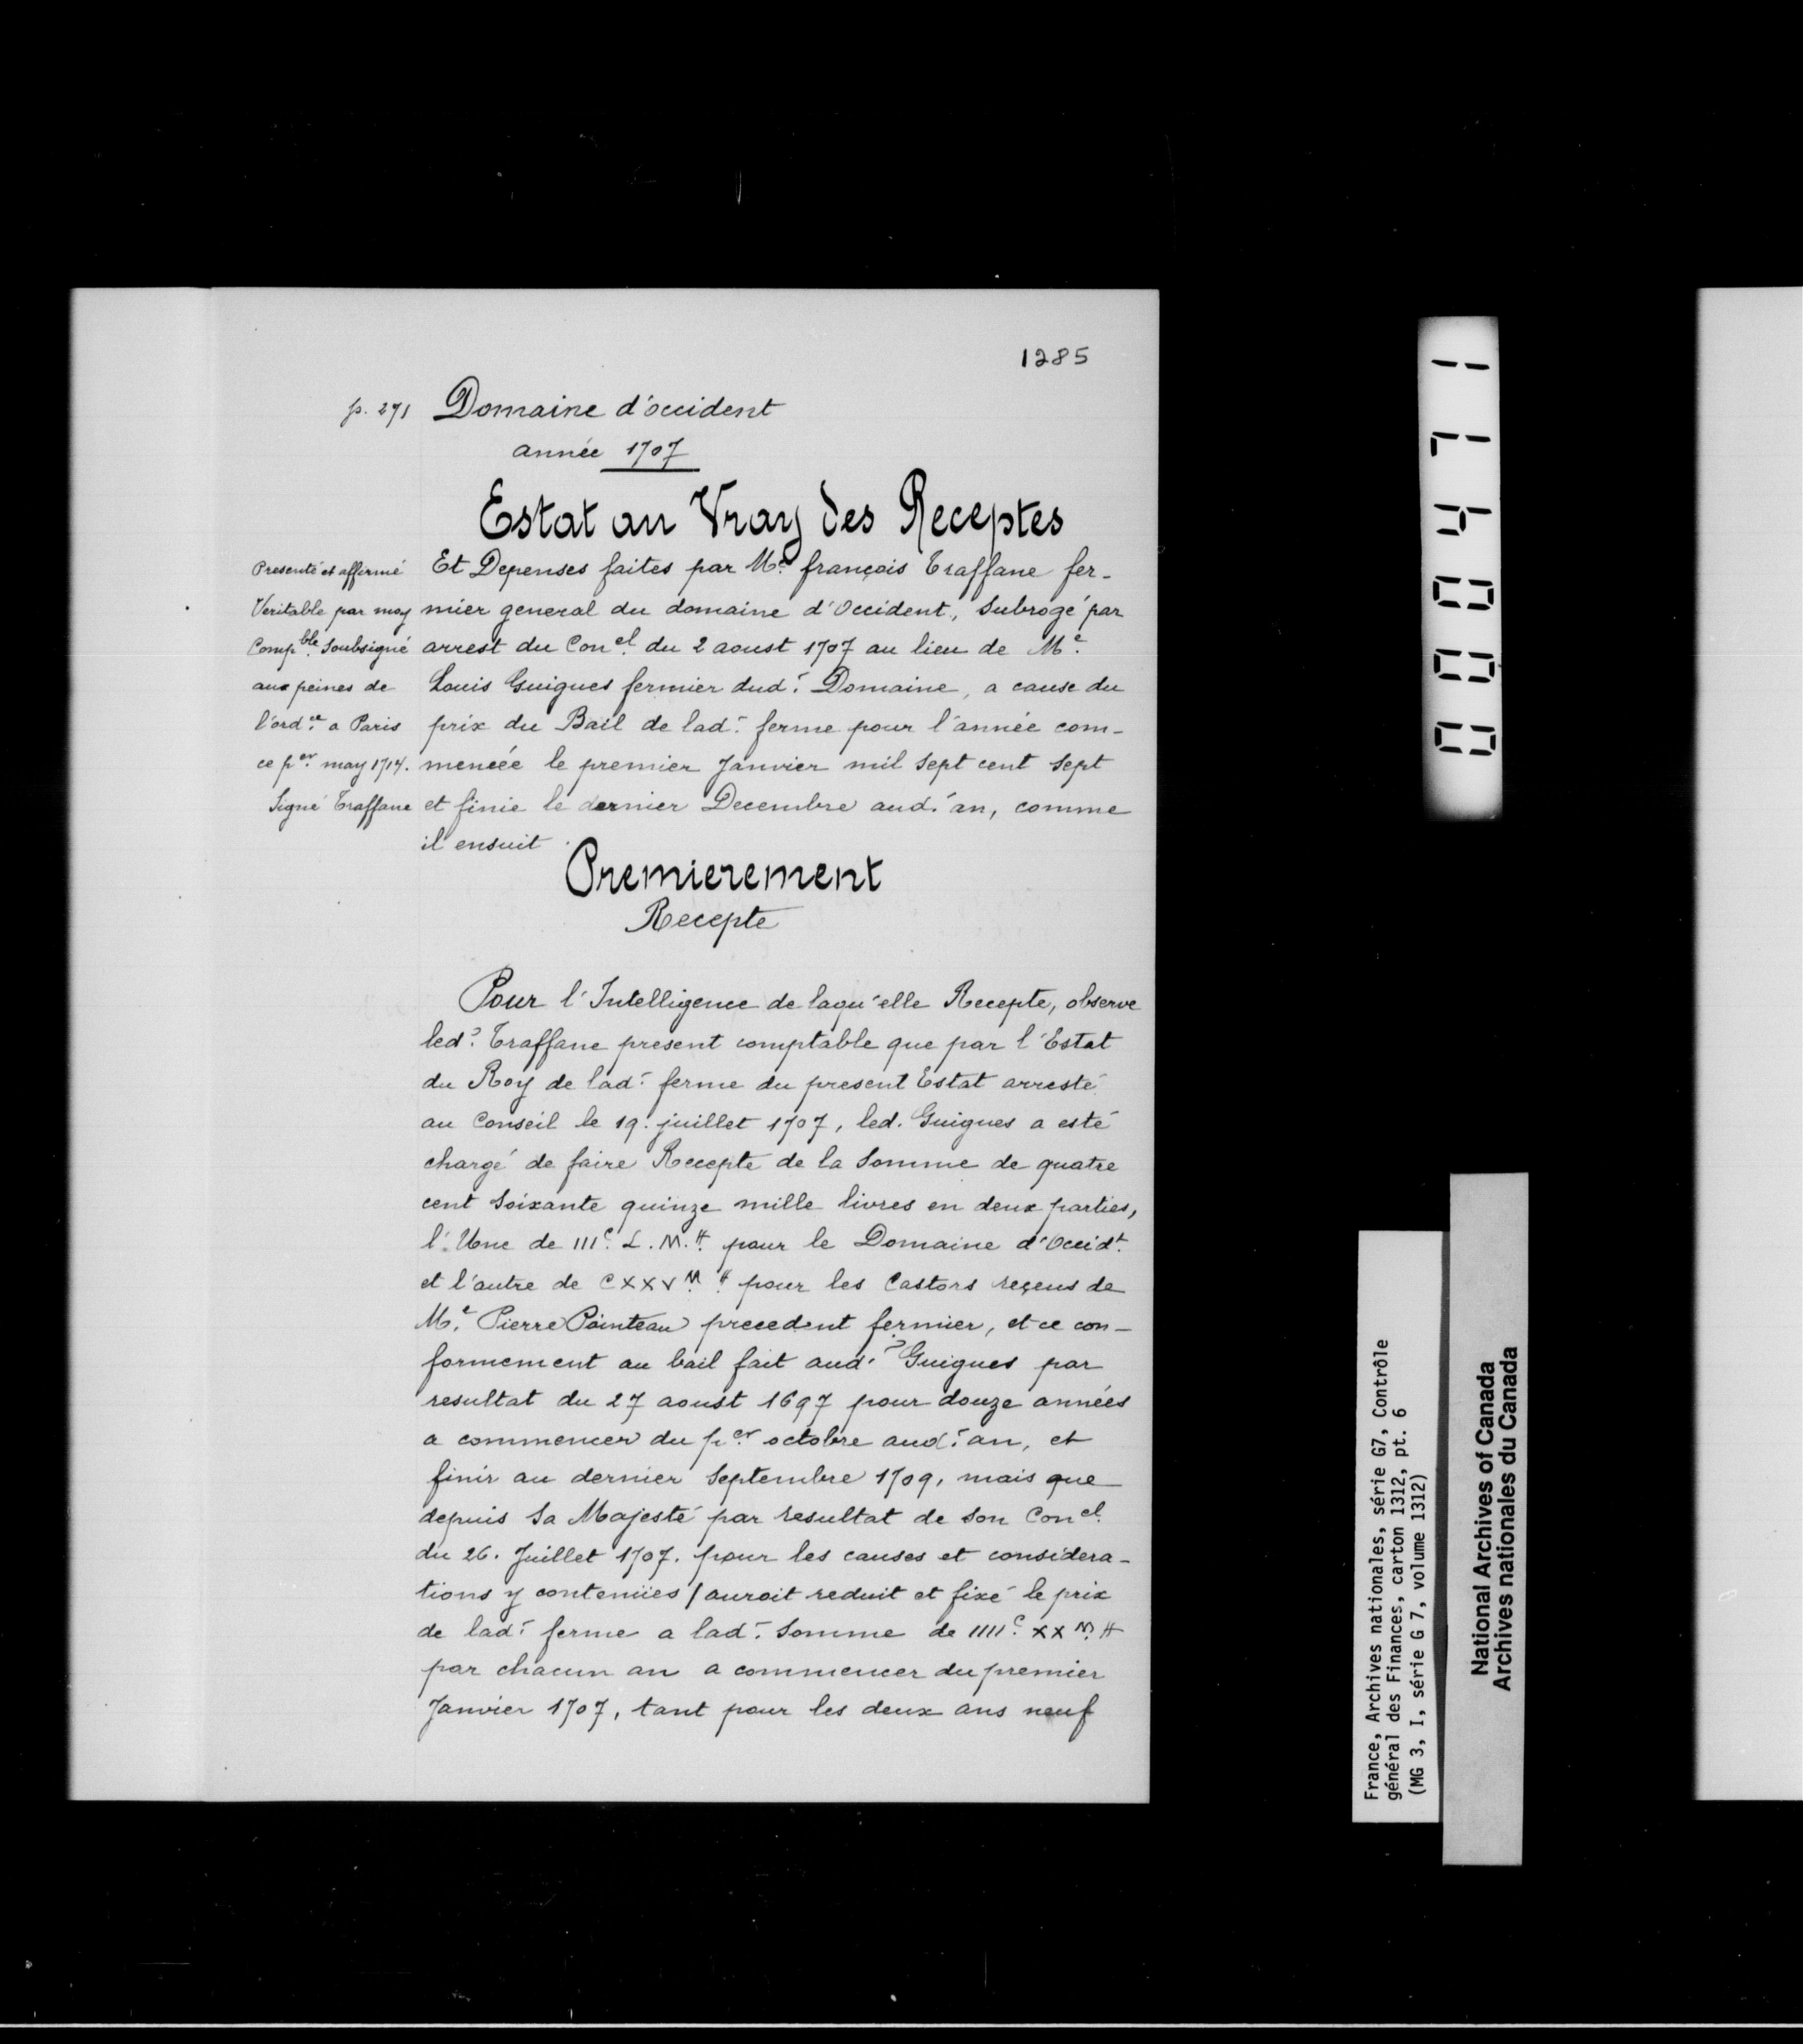 1285
p. 271 Domaine d'occident
année 1707
Estat au Vray des Receptes
Presenté et affirmé
Veritable par moy
Compble. Soubsigné
aux peines de
l'ordce. a Paris
ce per. may 1714.
Signé Traffane
Et Depenses faites par Me. françois Traffane fer-
mier general du domaine d'Occident, Subrogé par
arrest du Concl. du 2 aoust 1707 au lieu de Me.
Louis Guigues fermier dud. Domaine, a cause du
prix du Bail de lad. ferme pour l'année com-
mencée le premier Janvier mil Sept cent Sept
et finie le dernier Decembre aud. an, comme
il ensuit.
Premierement
Recepte
Pour l'Intelligence de laqu'elle Recepte, observe
led. Traffane present comptable que par l'Estat
du Roy de lad. ferme du present Estat arresté
au Conseil le 19. juillet 1707, led. Guigues a esté
chargé de faire Recepte de la Somme de quatre
cent Soixante quinze mille livres en deux parties,
l'Une de IIIc. L. M. ₶ pour le Domaine d'Occidt.
et l'autre de CXXV M. ₶ pour les Castors reçeus de
Me. Pierre Pointeau precedent fermier, et ce con-
formement au bail fait aud. Guigues par
resultat du 27 aoust 1697 pour douze années
a commencer du per. octobre aud. an, et
finir au dernier Septembre 1709, mais que
depuis Sa Majesté par resultat de son Concl.
du 26. Juillet 1707. pour les causes et considera-
tions y contenües / auroit reduit et fixé le prix
de lad. ferme a lad. Somme de IIIIc. XX M. ₶
par chacun an a commencer du premier
Janvier 1707, tant pour les deux ans neuf
000471
France, Archives nationales, série G7, Contrôle
général des Finances, carton 1312, pt. 6
(MG 3, I, série G 7, volume 1312)
National Archives of Canada
Archives nationales du Canada